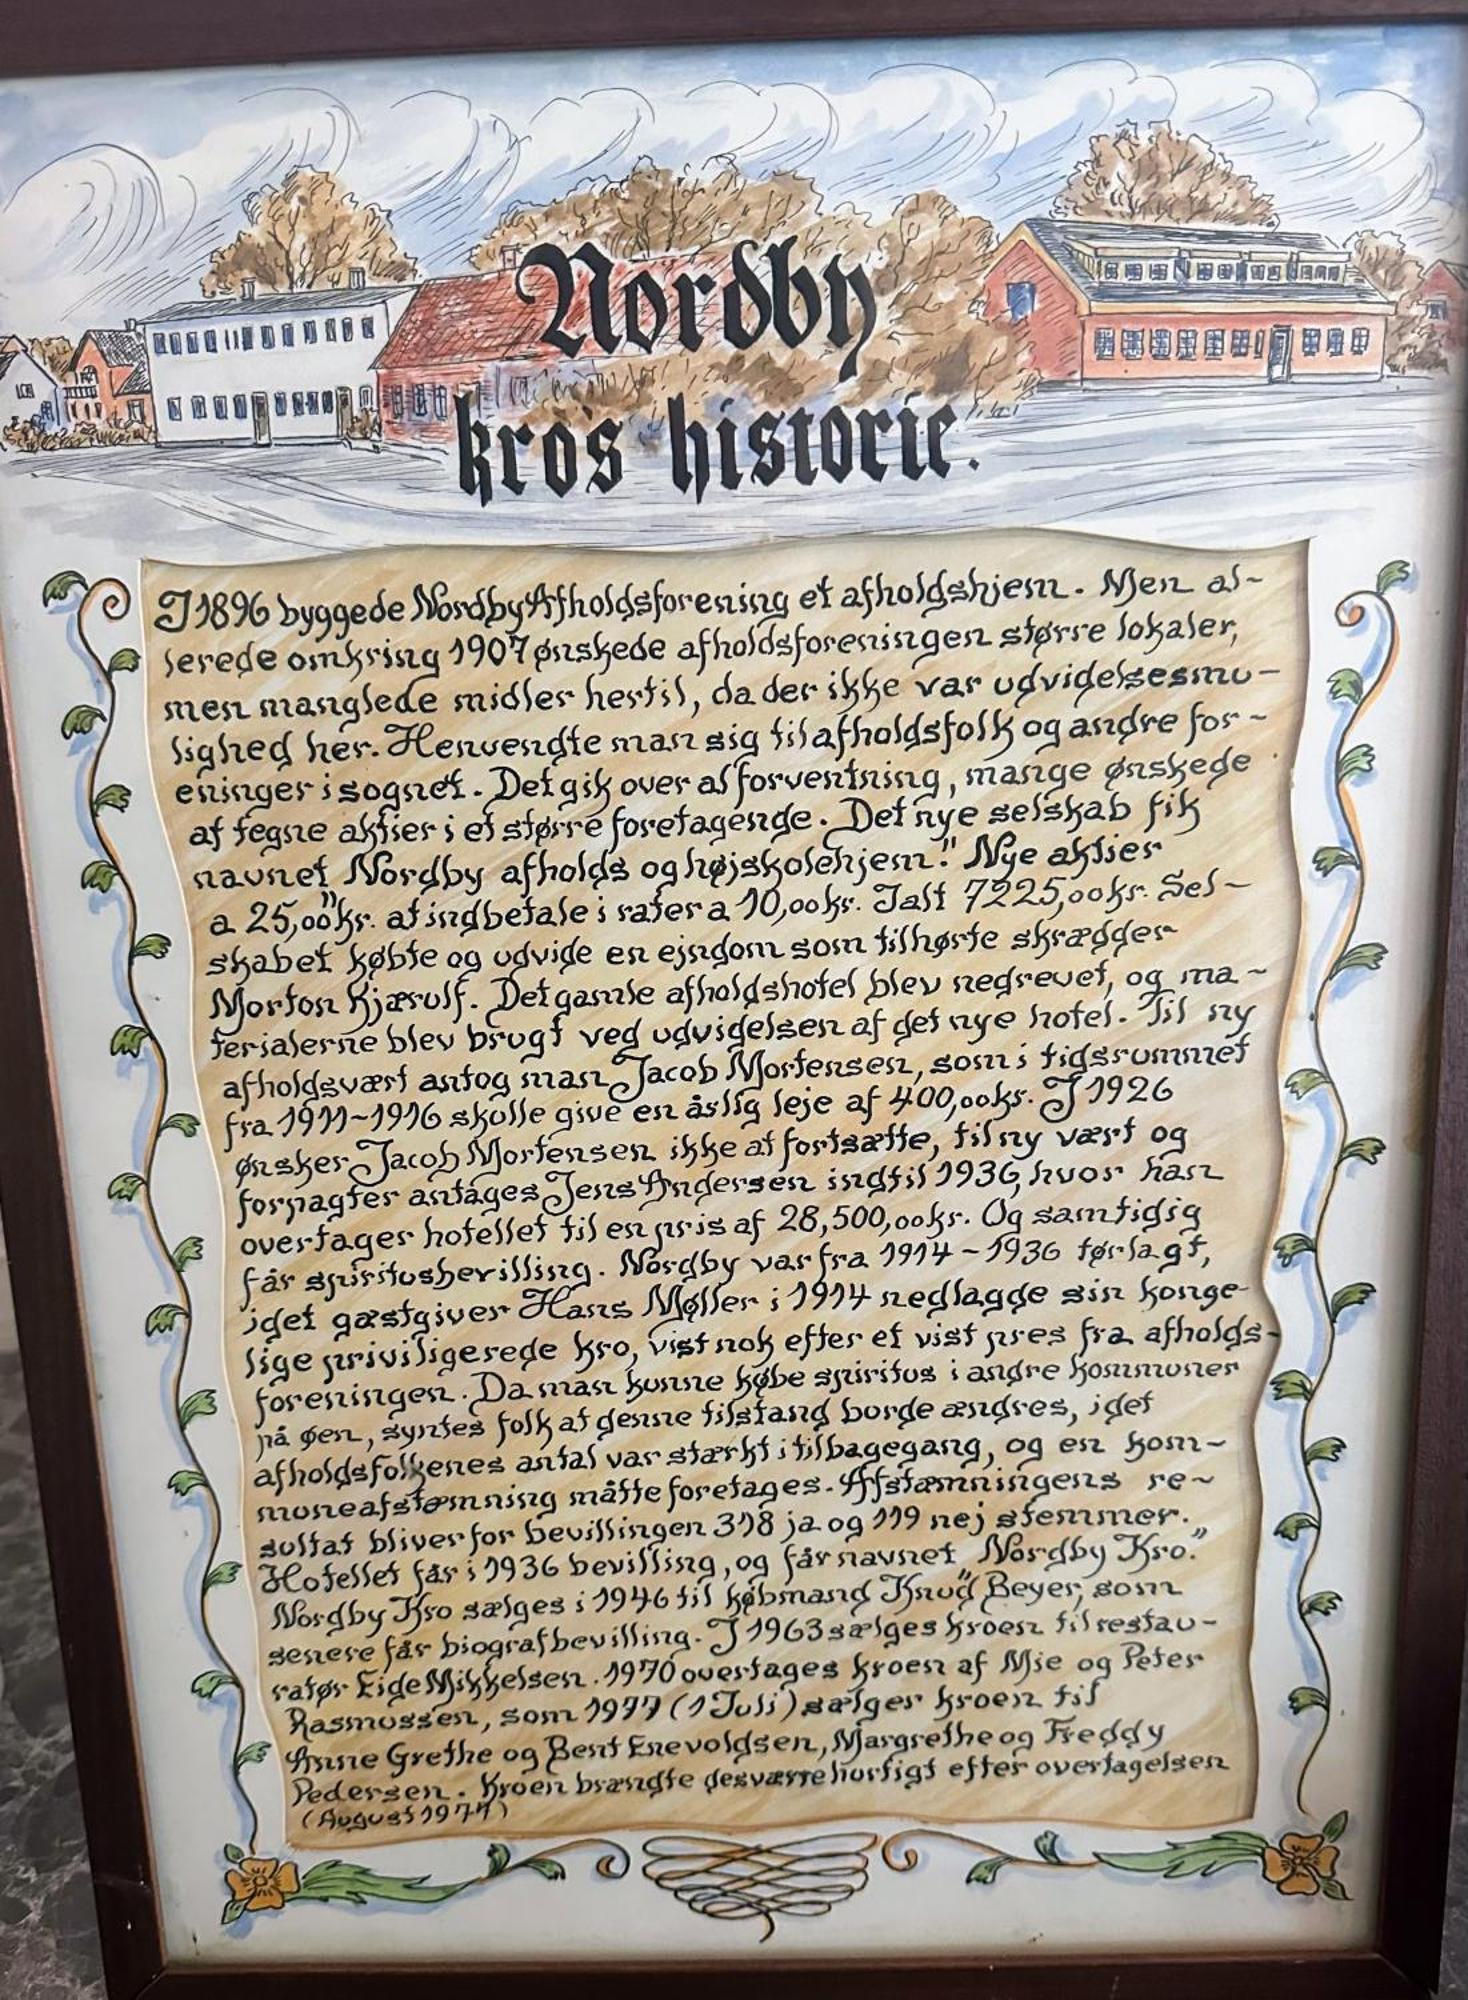 Nordby
kro's historie.
I 1896 byggede Nordby Afholdsforening et afholdshjem. Men al-
lerede omkring 1907 ønskede afholdsforeningen større lokaler,
men manglede midler hertil, da der ikke var udvidelsesmu-
lighed her. Henvendte man sig til afholdsfolk og andre for-
eninger i sognet. Det gik over al forventning, mange ønskede
at tegne aktier i et større foretagende. Det nye selskab fik
navnet „Nordby afholds og højskolehjem". Nye aktier
a 25,00 kr. at indbetale i rater a 10,00 kr. Ialt 7225,00 kr. Sel-
skabet købte og udvide en ejndom som tilhørte skrædder
Morton Kjærulf. Det gamle afholdshotel blev nedrevet, og ma-
terialerne blev brugt ved udvidelsen af det nye hotel. Til ny
afholdsvært antog man Jacob Mortensen, som i tidsrummet
fra 1911-1916 skulle give en årlig leje af 400,00 kr. I 1926
ønsker Jacob Mortensen ikke at fortsætte, til ny vært og
forpagter antages Jens Andersen indtil 1936, hvor han
overtager hotellet til en pris af 28,500,00 kr. Og samtidig
får spiritusbevilling. Nordby var fra 1914-1936 tørlagt,
idet gæstgiver Hans Møller i 1914 nedlagde sin konge-
lige priviligerede kro, vist nok efter et vist pres fra afholds-
foreningen. Da man kunne købe spiritus i andre kommuner
på øen, syntes folk at denne tilstand burde ændres, idet
afholdsfolkenes antal var stærkt i tilbagegang, og en kom-
muneafstemning måtte foretages. Afstæmningens re-
sultat bliver for bevillingen 318 ja og 119 nej stemmer.
Hotellet får i 1936 bevilling, og får navnet „Nordby Kro."
Nordby Kro sælges i 1946 til købmand Knud Beyer, som
senere får biografbevilling. I 1963 sælges kroen til restau-
ratør Eide Mikkelsen. 1970 overtages kroen af Mie og Peter
Rasmussen, som 1977 (1 Juli) sælger kroen til
Anne Grethe og Bent Enevoldsen, Margrethe og Freddy
Pedersen. Kroen brændte desværre hurtigt efter overtagelsen
(August 1977)